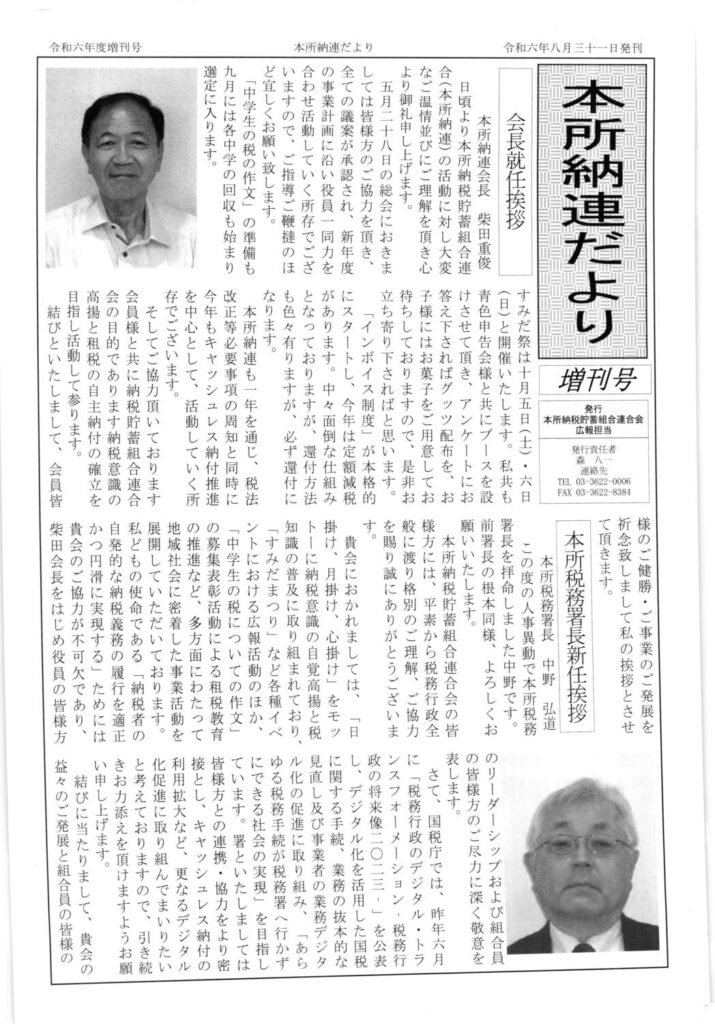 令和六年度増刊号
本所納連だより
令和六年八月三十一日発刊
本所納連だより
増刊号
発行
本所納税貯蓄組合連合会
広報担当
発行責任者
森 八一
連絡先
TEL 03-3622-0006
FAX 03-3622-8384
会長就任挨拶
本所納連会長 柴田重俊
日頃より本所納税貯蓄組合連
合(本所納連)の活動に対し大変
なご温情並びにご理解を頂き心
より御礼申し上げます。
五月二十八日の総会におきま
しては皆様方のご協力を頂き、
全ての議案が承認され、新年度
の事業計画に沿い役員一同力を
合わせ活動していく所存でござ
いますので、ご指導ご鞭撻のほ
ど宜しくお願い致します。
「中学生の税の作文」の準備も
九月には各中学の回収も始まり
選定に入ります。
すみだ祭は十月五日(土)・六日
(日)と開催いたします。私共も
青色申告会様と共にブースを設
けさせて頂き、アンケートにお
答え下さればグッツ配布を、お
子様にはお菓子をご用意してお
待ちしておりますので、是非お
立ち寄り下さればと思います。
「インボイス制度」が本格的
にスタートし、今年は定額減税
があります。中々面倒な仕組み
となっておりますが、還付方法
も色々有りますが、必ず還付に
なります。
本所納連も一年を通じ、税法
改正等必要事項の周知と同時に
今年もキャッシュレス納付推進
を中心として、活動していく所
存でございます。
そしてご協力頂いております
会員様と共に納税貯蓄組合連合
会の目的であります納税意識の
高揚と租税の自主納付の確立を
目指し活動して参ります。
結びといたしまして、会員皆
様のご健勝・ご事業のご発展を
祈念致しまして私の挨拶とさせ
て頂きます。
本所税務署長新任挨拶
本所税務署長 中野 弘道
この度の人事異動で本所税務
署長を拝命しました中野です。
前署長の根本同様、よろしくお
願いいたします。
本所納税貯蓄組合連合会の皆
様方には、平素から税務行政全
般に渡り格別のご理解、ご協力
を賜り誠にありがとうございま
す。
貴会におかれましては、「日
掛け、月掛け、心掛け」をモッ
トーに納税意識の自覚高揚と税
知識の普及に取り組まれており、
「すみだまつり」など各種イベ
ントにおける広報活動のほか、
「中学生の税についての作文」
の募集表彰活動による租税教育
の推進など、多方面にわたって
地域社会に密着した事業活動を
展開していただいております。
私どもの使命である「納税者の
自発的な納税義務の履行を適正
かつ円滑に実現する」ためには
貴会のご協力が不可欠であり、
柴田会長をはじめ役員の皆様方
のリーダーシップおよび組合員
の皆様方のご尽力に深く敬意を
表します。
さて、国税庁では、昨年六月
に「税務行政のデジタル・トラ
ンスフォーメーション‐税務行
政の将来像二〇二三‐」を公表
し、デジタル化を活用した国税
に関する手続、業務の抜本的な
見直し及び事業者の業務デジタ
ル化の促進に取り組み、「あら
ゆる税務手続が税務署へ行かず
にできる社会の実現」を目指し
ています。署といたしましては
皆様方との連携・協力をより密
接とし、キャッシュレス納付の
利用拡大など、更なるデジタル
化促進に取り組んでまいりたい
と考えておりますので、引き続
きお力添えを頂けますようお願
い申し上げます。
結びに当たりまして、貴会の
益々のご発展と組合員の皆様の